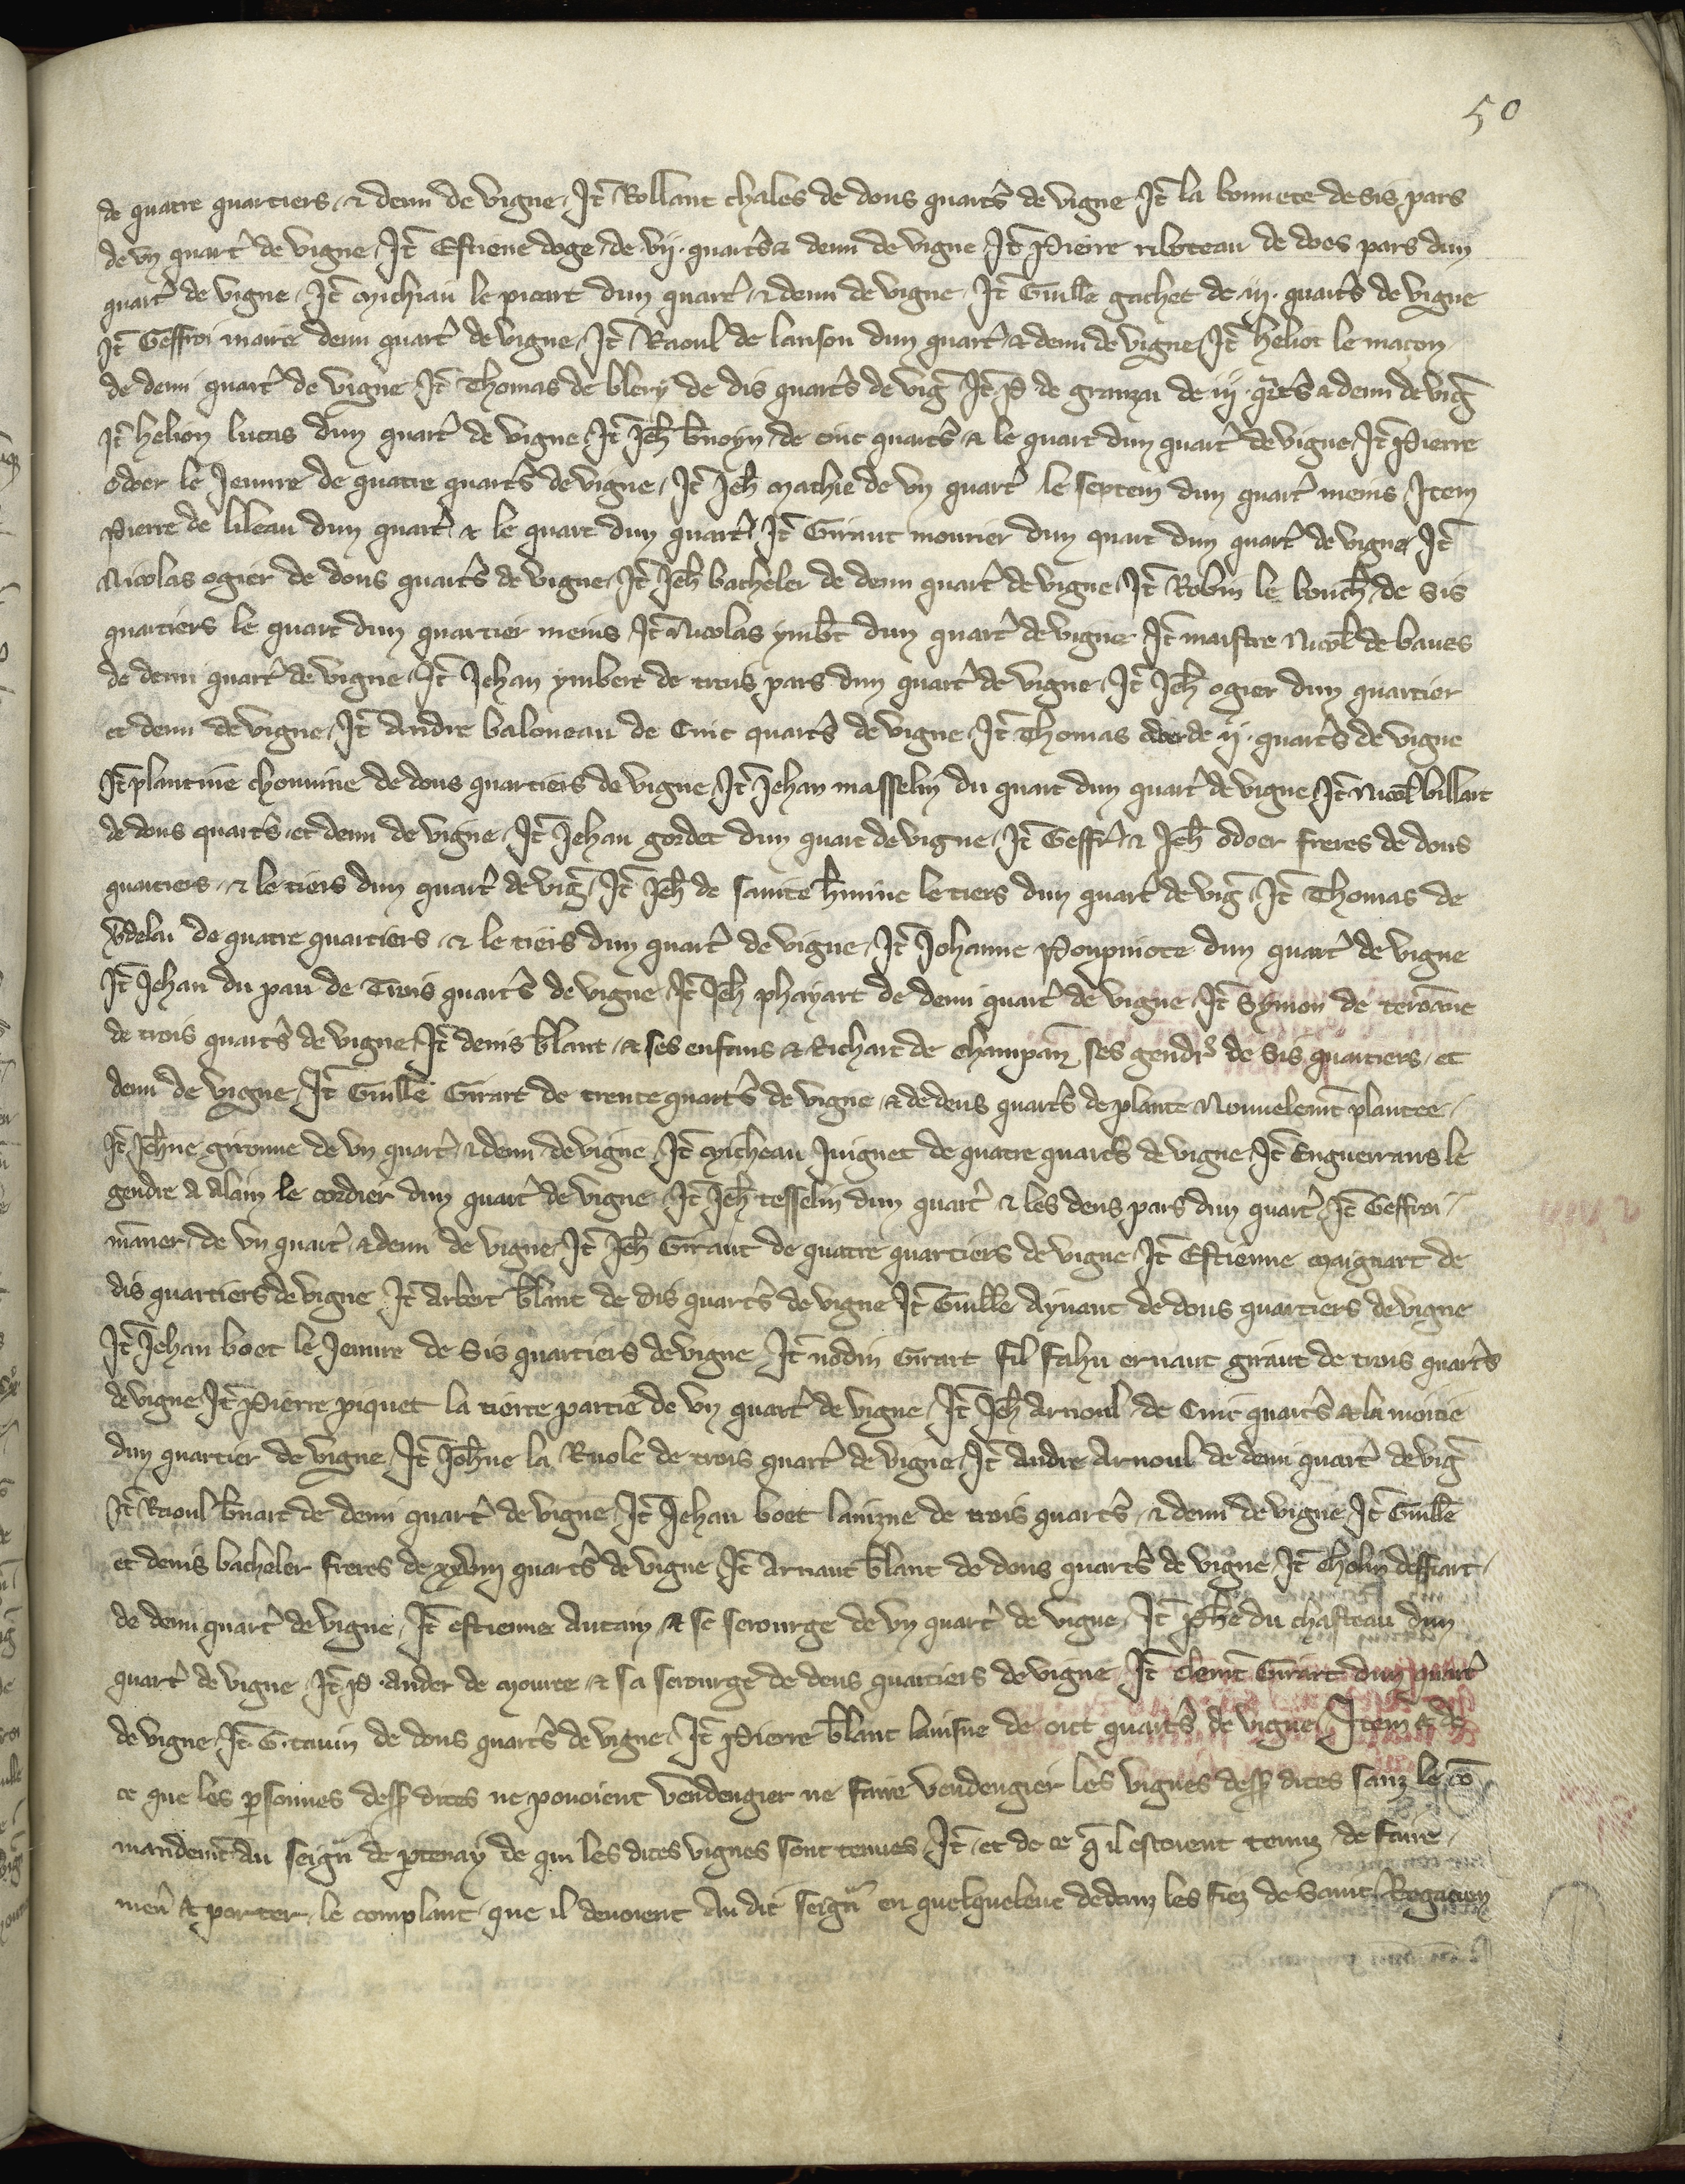 50
de quatre quartiers & demi de vigne, It̃ Rollant chales de dous quart̉s de vigne It̃ la bonnete de sis pars
de vn quart̉ de vigne, It̃ Estiene doge de .vij. quart̉s & demi de vigne It̃ Pierre riboteau de does pars dun
quart̉ de vigne, It̃ Michiau le picart dun quart̉ & demi de vigne, It̃ Guill̃e gachet de .iij. quart̉s de vigne
It̃ Geffroi maire demi quart̉ de vigne, It̃ Raoul de lanson dun quart̉ & demi de vigne, It̃ heliot le maçon
de demi quart̉ de vigne It̃ Thomas de blery de dis quart̉s de vig̃ It̃ P de granzai de iij. q̃rt̉s & demi de vig̃
It̃ helion lucas dun quart̉ de vigne, It̃ Jeh̃ b̃noyn de cinc quart̉s & le quart dun quart̉ de vigne, It̃ Pierre
odoer le Jeunre de quatre quart̉s de vigne, It̃ Jeh̃ Mathie de vn quart̉ le septem dun quart̉ meins, Item
Pierre de lileau dun quart̉ & le quart dun quart̉, It̃ Giraut mourier dun quart dun quart̉ de vigne, It̃
Nicolas ogier de dous quart̉s de vigne, It̃ Jeh̃ bacheler de demi quart̉ de vigne, It̃ Robin le bouch̃ de sis
quartiers le quart dun quartier meins It̃ Nicolas ymb̃t dun quart̉ de vigne It̃ maistre Nicol̃ de baues
de demi quart̉ de vigne, It̃ Jehan ymbert de trois pars dun quart̉ de vigne, It̃ Jeh̃ ogier dun quartier
et demi de vigne, It̃ Andre baloneau de Cinc quart̉s de vigne, It̃ Thomas de ij. quart̉s de vigne
It̃ plantine de dous quartiers de vigne, It̃ Jehan masselin du quart dun quart̉ de vigne, It̃ Nicol̃ billart
de dous quart̉s et demi de vigne, It̃ Jehan gordet dun quart de vigne, It̃ Geffr̃ & Jeh̃ odoer freres de dous
quartiers & le tiers dun quart̉ de vig̃, It̃ Jeh̃ de sainte h̃mine le tiers dun quart̉ de vig̃, It̃ Thomas de
de quatre quartiers & le tiers dun quart̉ de vigne, It̃ Johanne Poupinote dun quart̉ de vigne
It̃ Jehan du pau de Trois quart̉s de vigne, It̃ Jeh̃ phayart de demi quart̉ de vigne, It̃ Symon de teroãne
de trois quart̉s de vigne, It̃ denis blant & ses enfans & Richart de champañ ses gendr̉s de sis quartiers, et
demi de vigne, It̃ Guill̃e Girart de trente quart̉s de vigne & de deus quart̉s de plante Nouuelemt̃ plantee,
It̃ Joh̃ne gironne de vn quart̉ & demi de vigne, It̃ Micheau Juignet de quatre quart̉s de vigne, It̃ Enguerrans le
gendre A Alain le cordier dun quart̉ de vigne, It̃ Jeh̃ tesselin dun quart̉ & les deus pars dun quart̉, It̃ Geffroi
mañer de vn quart̉ & demi de vigne, It̃ Jeh̃ Giraut de quatre quartiers de vigne, It̃ Estienne Maignart de
dis quartiers de vigne It̃ Arbert blanc de dis quart̉s de vigne It̃ Guill̃e Aynaut de dous quartiers de vigne
It̃ Jehan boet le Jeunre de Sis quartiers de vigne, It̃ nodin Girart fil fahu ernaut giraut de trois quart̉s
de vigne, It̃ Pierre piquet la tierce partie de vn quart̉ de vigne, It̃ Jeh̃ Arnoul de Cinc quart̉s & la moitie
dun quartier de vigne, It̃ Joh̃ne la Ruole de trois quart̉ de vigne, It̃ Andre Arnoul de demi quart̉ de vig̃
It̃ Raoul b̃nart de demi quart̉ de vigne, It̃ Jehan boet lainzne de trois quart̉s & demi de vigne, It̃ Guill̃e
et denis bacheler freres de xxviij quart̉s de vigne, It̃ Arnaut blanc de dous quart̉s de vigne, It̃ Tholin
de demi quart̉ de vigne, It̃ estienne Autain & sᵉ serourge de vn quart̉ de vigne, It̃ ph̃e du chasteau dun
quart̉ de vigne, It̃ P. Ander de & sa serourge de deus quartiers de vigne, It̃ clemt̃ Girart dun quart̉
de vigne, It̃ G. tauin de dous quart̉s de vigne, It̃ Pierre blanc lainsne de oict quart̉s de vigne, Item & de
ce que les p̱sonnes dess̃ dites ne pouoient vendengier ne faire vendengier les vignes dess̃ dites sanz le cõ
mandemt̃ du seign̉ de p̱tenay de qui les dites vignes sont tenues, It̃ et de ce q̃ il estoient tenuz de faire
men̉ & porter le complant que il deuoient Au dit seign̉ en quelqueleue dedanz les fiez de Saint Rogacien